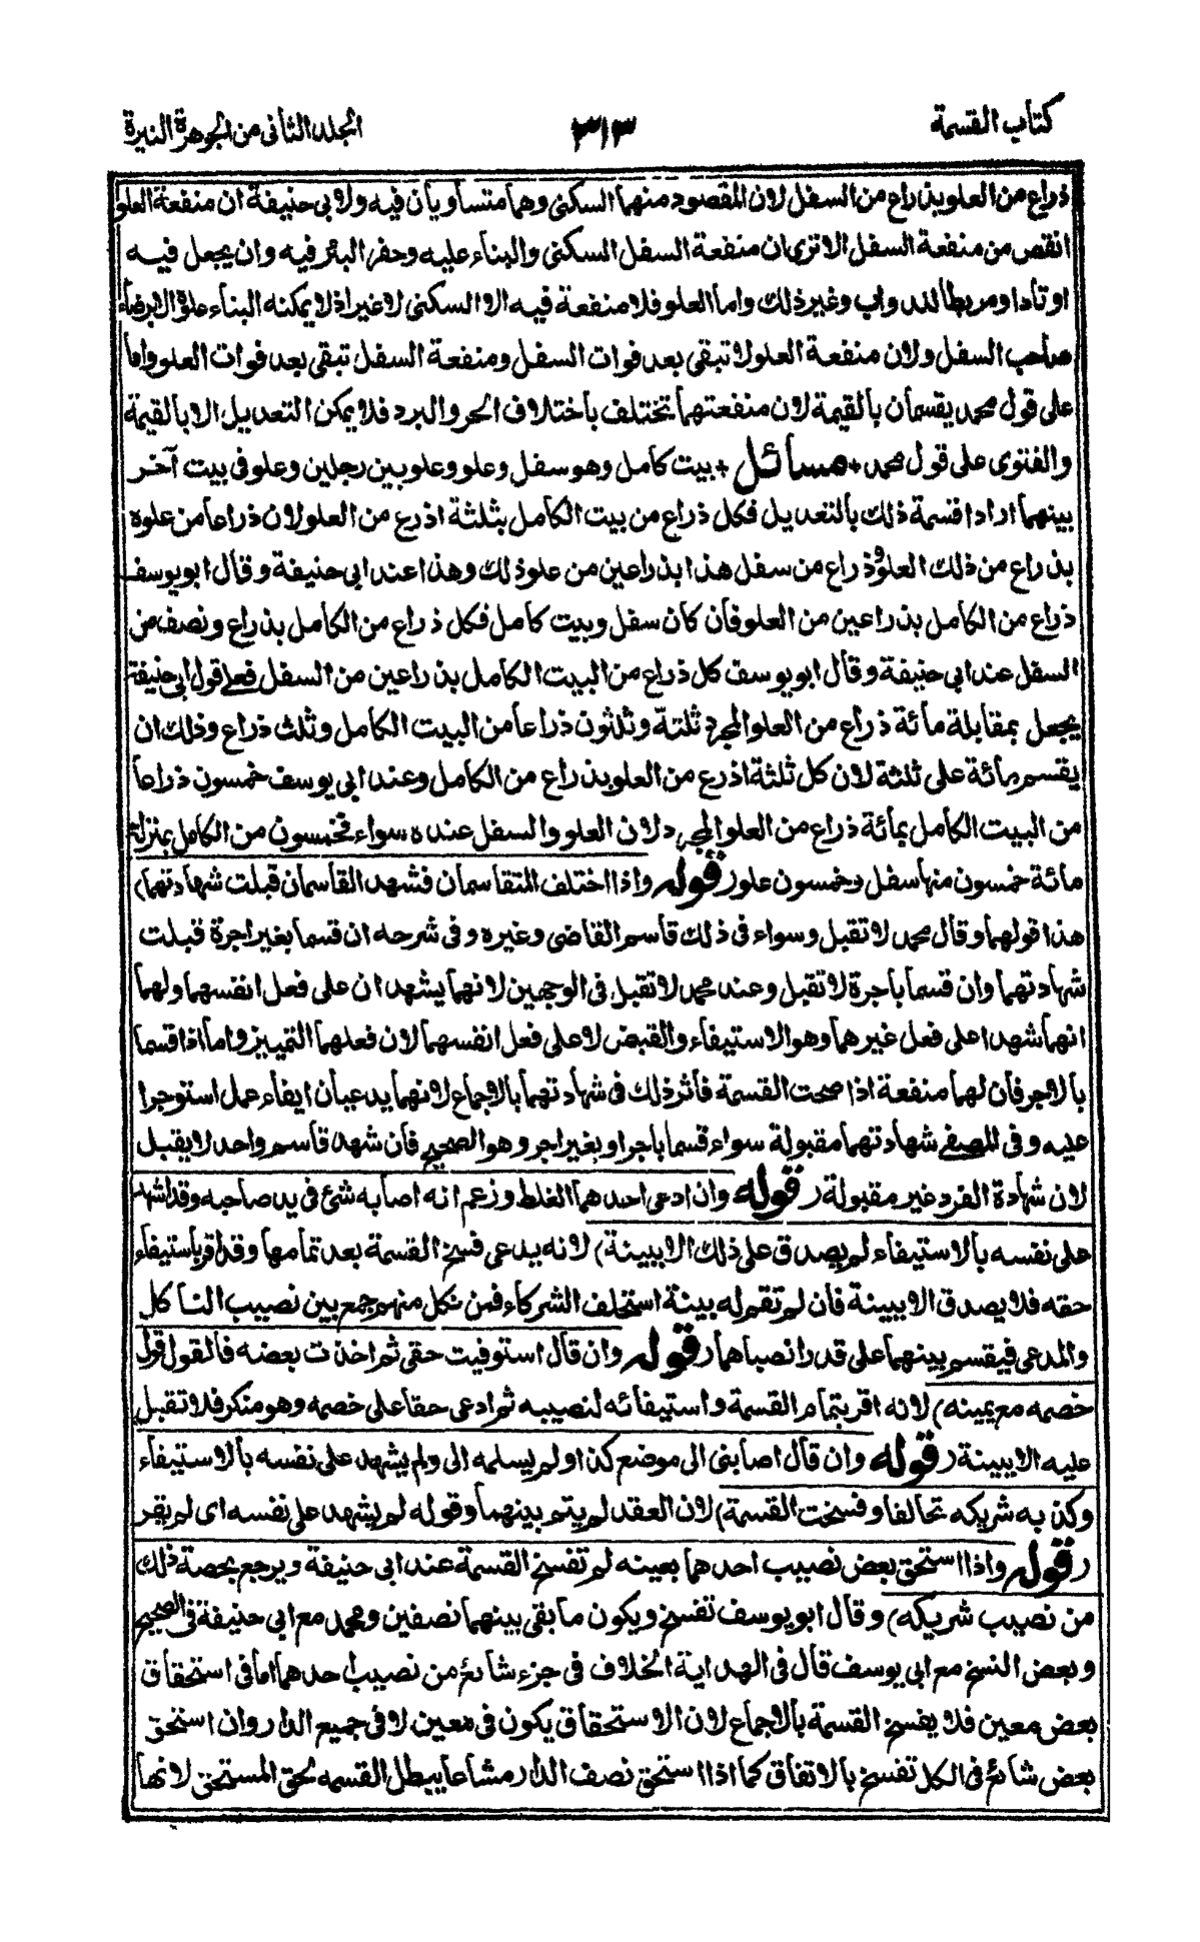 كتاب القسمة
٣١٣
الجلد الثانى من الجوهرة النيرة
ذراع من العلو بذراع من السفل لان المقصود منهما السكنى وهما متساويان فيه ولابى حنيفة ان منفعة العلو
انقص من منفعة السفل الا ترى ان منفعة السفل السكنى والبناء عليه وحفر البئر فيه وان يجعل فيه
اوتادا ومربطا للدواب وغير ذلك واما العلو فلا منفعة فيه الا السكنى لا غير اذ لا يمكنه البناء على الا برضاء
صاحب السفل ولان منفعة العلو لا تبقى بعد فوات السفل ومنفعة السفل تبقى بعد فوات العلو واما
على قول محمد يقسمان بالقيمة لان منفعتهما تختلف باختلاف الحر والبرد فلا يمكن التعديل الا بالقيمة
والفتوى على قول محمد + مسائل + بيت كامل وهو سفل وعلو وعلو بين رجلين وعلو فى بيت آخر
بينهما ارادا قسمة ذلك بالتعديل فكل ذراع من بيت الكامل بثلثة اذرع من العلو لان ذراعا من علوه
بذراع من ذلك العلو وذراع من سفل هذا بذراعين من علو ذلك وهذا عند ابى حنيفة وقال ابو يوسف
ذراع من الكامل بذراعين من العلو فان كان سفل وبيت كامل فكل ذراع من الكامل بذراع ونصف من
السفل عند ابى حنيفة وقال ابو يوسف كل ذراع من البيت الكامل بذراعين من السفل فعلى قول ابى حنيفة
يجعل بمقابلة مائة ذراع من العلو المجرد ثلثة وثلثون ذراعا من البيت الكامل وثلث ذراع وذلك ان
يقسم مائة على ثلثة لان كل ثلثة اذرع من العلو بذراع من الكامل وعند ابى يوسف خمسون ذراعا
من البيت الكامل بمائة ذراع من العلو المجرد لان العلو والسفل عنده سواء فخمسون من الكامل بمنزلة
مائة خمسون منها سفل وخمسون علو (قوله واذا اختلف المتقاسمان فشهد القاسمان قبلت شهادتهما)
هذا قولهما وقال محمد لا تقبل وسواء فى ذلك قاسم القاضى وغيره وفى شرحه ان قسما بغير اجرة قبلت
شهادتهما وان قسما باجرة لا تقبل وعند محمد لا تقبل فى الوجهين لانهما يشهدان على فعل انفسهما ولهما
انهما شهدا على فعل غيرهما وهو الاستيفاء والقبض لا على فعل انفسهما لان فعلهما التمييز واما اذا قسما
بالاجر فان لهما منفعة اذا صحت القسمة فاثر ذلك فى شهادتهما بالاجماع لانهما يدعيان ايفاء عمل استوجرا
عليه وفى المصفى شهادتهما مقبولة سواء قسما باجر او بغير اجر وهو الصحيح فان شهد قاسم واحد لا يقبل
لان شهادة الفرد غير مقبولة (قوله وان ادعى احدهما الغلط وزعم انه اصابه شئ فى يد صاحبه وقد اشهد
على نفسه بالاستيفاء لم يصدق على ذلك الا ببينة) لانه يدعى فسخ القسمة بعد تمامها وقد اقر باستيفاء
حقه فلا يصدق الا ببينة فان لم تقم له بينة استحلف الشركاء فمن نكل منهم جمع بين نصيب الناكل
والمدعى فيقسم بينهما على قدر انصباهما (قوله وان قال استوفيت حقى ثم اخذت بعضه فالقول قول
خصمه مع يمينه) لانه اقر بتمام القسمة واستيفائه لنصيبه ثم ادعى حقا على خصمه وهو منكر فلا تقبل
عليه الا ببينة (قوله وان قال اصابنى الى موضع كذا ولم يسلمه الى ولم يشهد على نفسه بالاستيفاء
وكذبه شريكه تحالفا وفسخت القسمة) لان العقد لم يتم بينهما وقوله لم يشهد على نفسه اى لم يقر
(قوله واذا استحق بعض نصيب احدهما بعينه لم تفسخ القسمة عند ابى حنيفة ويرجع بحصة ذلك
من نصيب شريكه) وقال ابو يوسف تفسخ ويكون ما بقى بينهما نصفين ومحمد مع ابى حنيفة فى الصحيح
وبعض النسخ مع ابى يوسف قال فى الهداية الخلاف فى جزء شائع من نصيب احدهما اما فى استحقاق
بعض معين فلا يفسخ القسمة بالاجماع لان الاستحقاق يكون فى معين لا فى جميع الدار وان استحق
بعض شائع فى الكل تفسخ بالاتفاق كما اذا استحق نصف الدار مشاعا يبطل القسمه لحق المستحق لانها